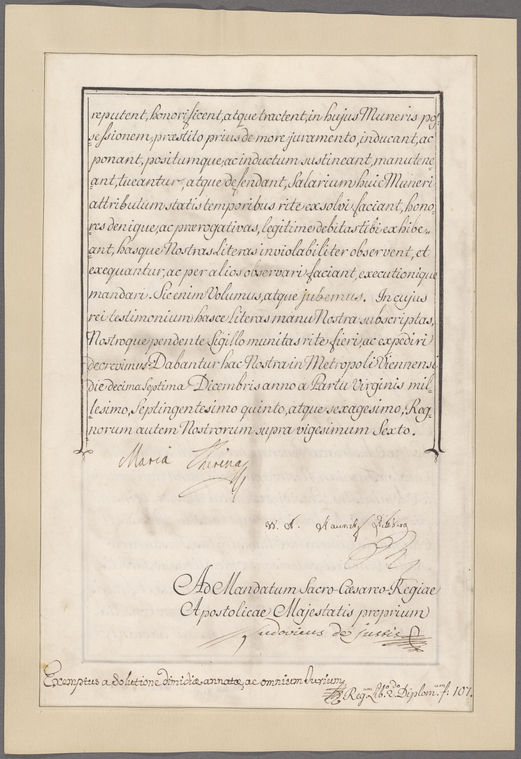 reputent, honorificent, atque tractent, in hujus Muneris pos-
sessionem, præstito prius de more juramento, inducant, ac
ponant, positumque, ac inductum sustineant, manutene-
ant, tueantur, atque defendant, Salarium huic Muneri
attributum statis temporibus rite exsolvi faciant, hono-
res denique, ac prærogativas, legitimo debitas tibi exhibe-
ant, hasque Nostras Literas inviolabiliter observent, et
exequantur, ac per alios observari faciant, executionique
mandari. Sic enim Volumus, atque jubemus. In cujus
rei testimonium hasce Literas manu Nostra subscriptas,
Nostroque pendente Sigillo munitas rite fieri, ac expediri
decrevimus. Dabantur hac Nostra in Metropoli Viennensi
die decima Septima Decembris anno a Partu Virginis mil-
lesimo, Septingentesimo quinto, atque sexagesimo, Reg-
norum autem Nostrorum supra vigesimum Sexto.
Maria Theresia
Ad Mandatum Sacro-Cæsareo-Regiae
Apostolicae Majestatis proprium
Ludovicus de
Exemptus a Solutione dimidiæ annatæ, ac omnium Jurium
Reg. Lib. 2do Diplom. f. 107.